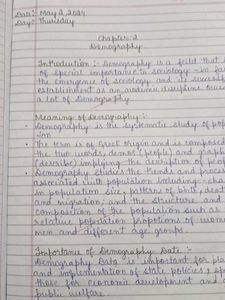 Date: May 2, 2024
Day: Thursday
Chapter-2
Demography
Introduction :- Demography is a field that is
of special importance to sociology - in fact
the emergence of sociology and its successful
establishment as an academic discipline owes
a lot of Demography.
Meaning of Demography :-
Demography is the systematic study of pop
The term is of Greek origin and is composed
the two words, demos (people) and graphie
(describe) implying the description of people
Demography studies the trends and process
associated with population including - cha
in population size; patterns of birth, death
and migration; and the structure and
composition of the population such as
relative population proportions of women
men and different age groups.
Importance of Demography Data :-
Demography Data is important for pla
and implementation of state policies, sp
those for economic development and
public welfare.